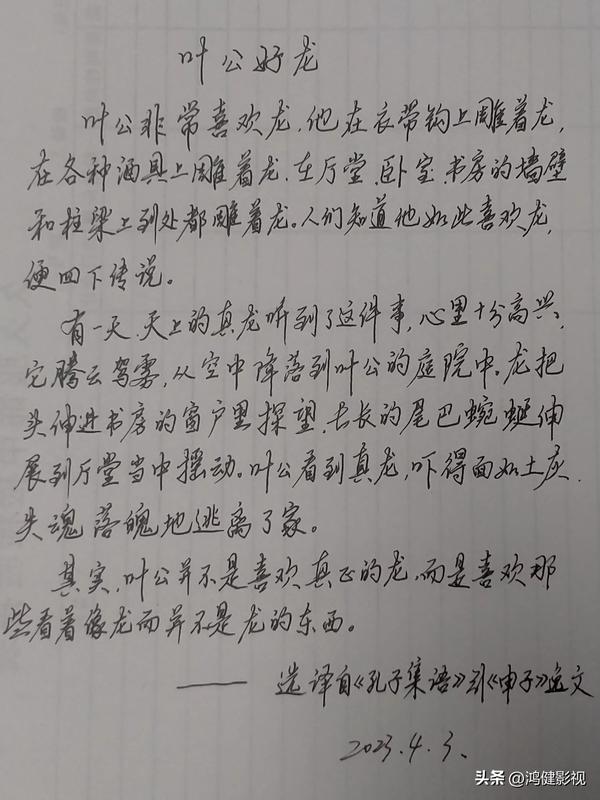 叶公好龙
叶公非常喜欢龙,他在衣带钩上雕着龙,
在各种酒具上雕着龙.在厅堂.卧室.书房的墙壁
和柱梁上到处都雕着龙。人们知道他如此喜欢龙,
便四下传说。
有一天.天上的真龙听到了这件事,心里十分高兴,
它腾云驾雾,从空中降落到叶公的庭院中。龙把
头伸进书房的窗户里探望.长长的尾巴蜿蜒伸
展到厅堂当中摇动。叶公看到真龙,吓得面如土灰.
失魂落魄地逃离了家。
其实,叶公并不是喜欢真正的龙,而是喜欢那
些看着像龙而并不是龙的东西。
—— 选译自《孔子集语》引《申子》逸文
2023.4.3、
头条@鸿健影视